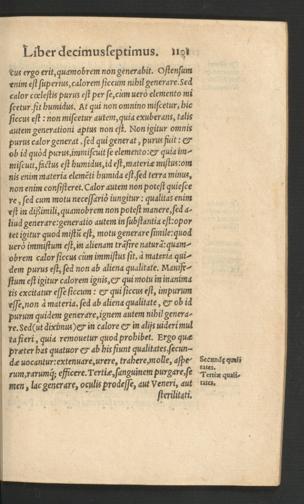 Liber decimusseptimus. 1191
cus ergo erit, quamobrem non generabit. Ostensum
enim est superius, calorem siccum nihil generare. Sed
calor cœlestis purus est per se, cùm uerò elemento mi
scetur fit humidus. At qui non omnino miscetur, hic
siccus est: non miscetur autem, quia exuberans, talis
autem generationi aptus non est. Non igitur omnis
purus calor generat, sed qui generat, purus fuit: &
ob id quòd purus, immiscuit se elemento: & quia im-
miscuit, factus est humidus, id est, materia mistus: om
nis enim materia elemēti humida est. sed terra minus,
non enim consisteret. Calor autem non potest quiesce
re, sed cum motu necessariò iungitur: qualitas enim
est in dissimili, quamobrem non potest manere, sed a-
liud generare: generatio autem in substantia est: opor
tet igitur quod mistū est, motu generare simile: quod
uerò immistum est, in alienam trāsire naturā: quam-
obrem calor siccus cùm immistus sit, à materia qui-
dem purus est, sed non ab aliena qualitate. Manife-
stum est igitur calorem ignis, & qui motu in inanima
tis excitatur esse siccum: & qui siccus est, impurum
esse, non à materia, sed ab aliena qualitate, & ob id
purum quidem generare, ignem autem nihil genera-
re. Sed (ut diximus) & in calore & in alijs uideri mul
ta fieri, quia remouetur quod prohibet. Ergo quæ
præter has quatuor & ab his fiunt qualitates, secun-
dæ uocantur: extenuare, urere, trahere, molle, aspe-
rum, rarumq; efficere. Tertiæ, sanguinem purgare, se
men, lac generare, oculis prodesse, aut Veneri, aut
sterilitati.
Secundæ quali
tates.
Tertiæ quali-
tates.